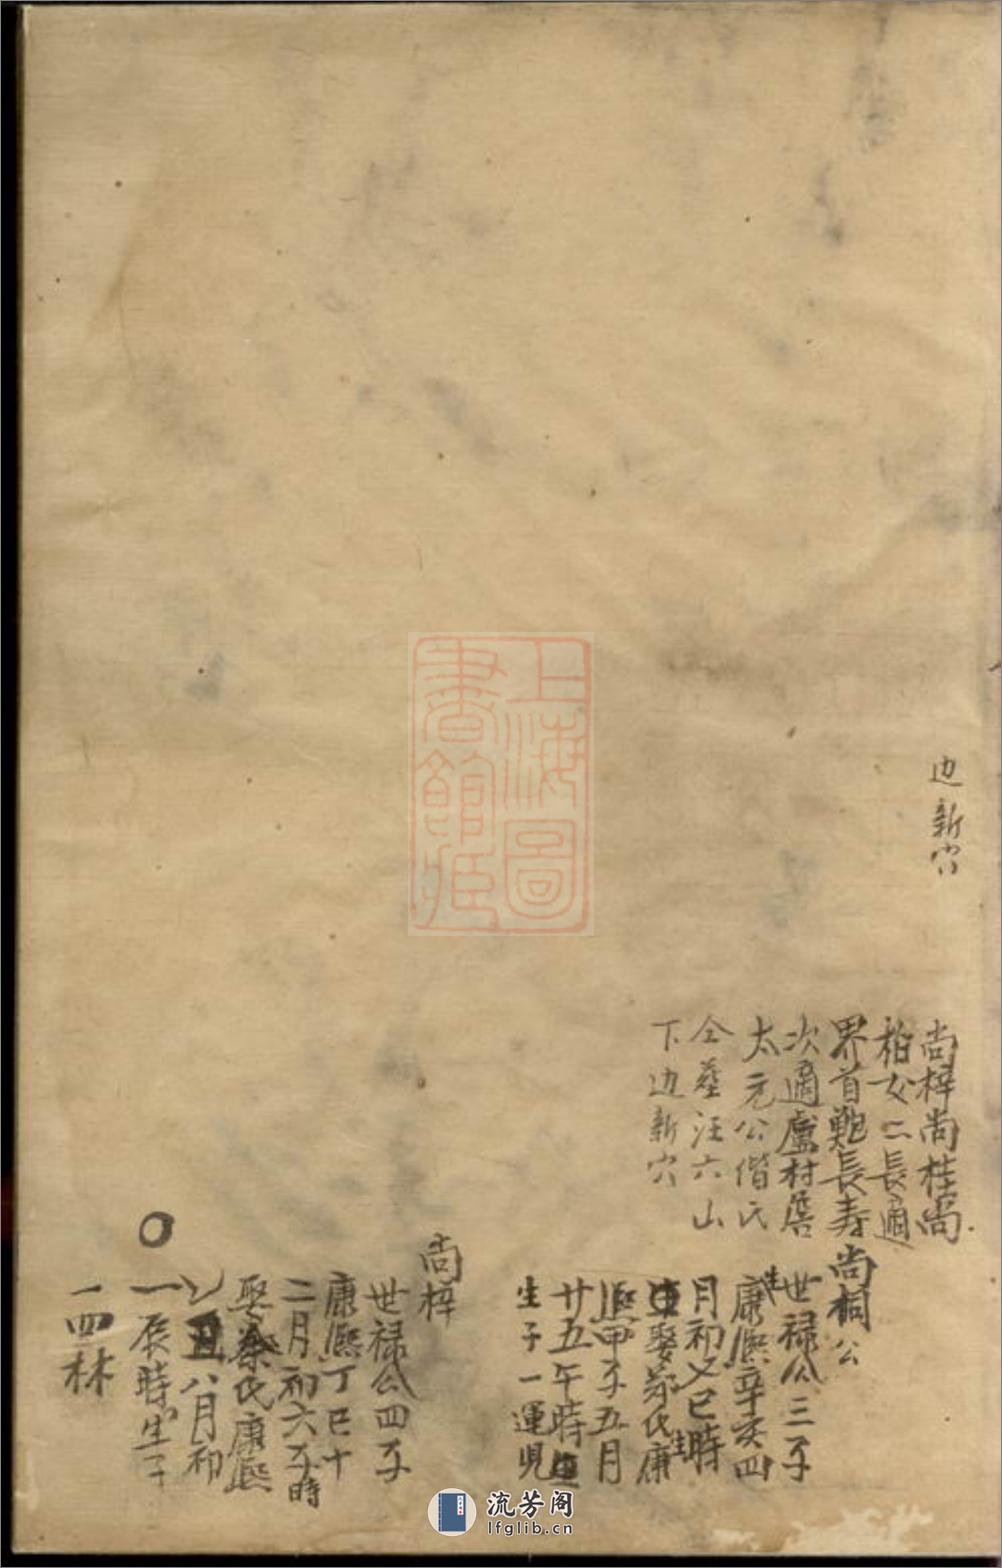 边新穴
尚梓尚桂尚
柏女二長適
界首鮑長寿
次適盧村詹
太元公偕氏
仝葬汪六山
下边新穴
尚桐公
世禄公三子
生康熙辛亥四
月初乂巳時
娶郑氏康
熙甲子五月
廿五午時生
生子一運児
尚梓
世禄公四子
康熙丁巳十
二月初六子時
娶秦氏康熙
丑八月初
一辰時生子
一四林
上海圖
書館藏
流芳阁
lfglib.cn